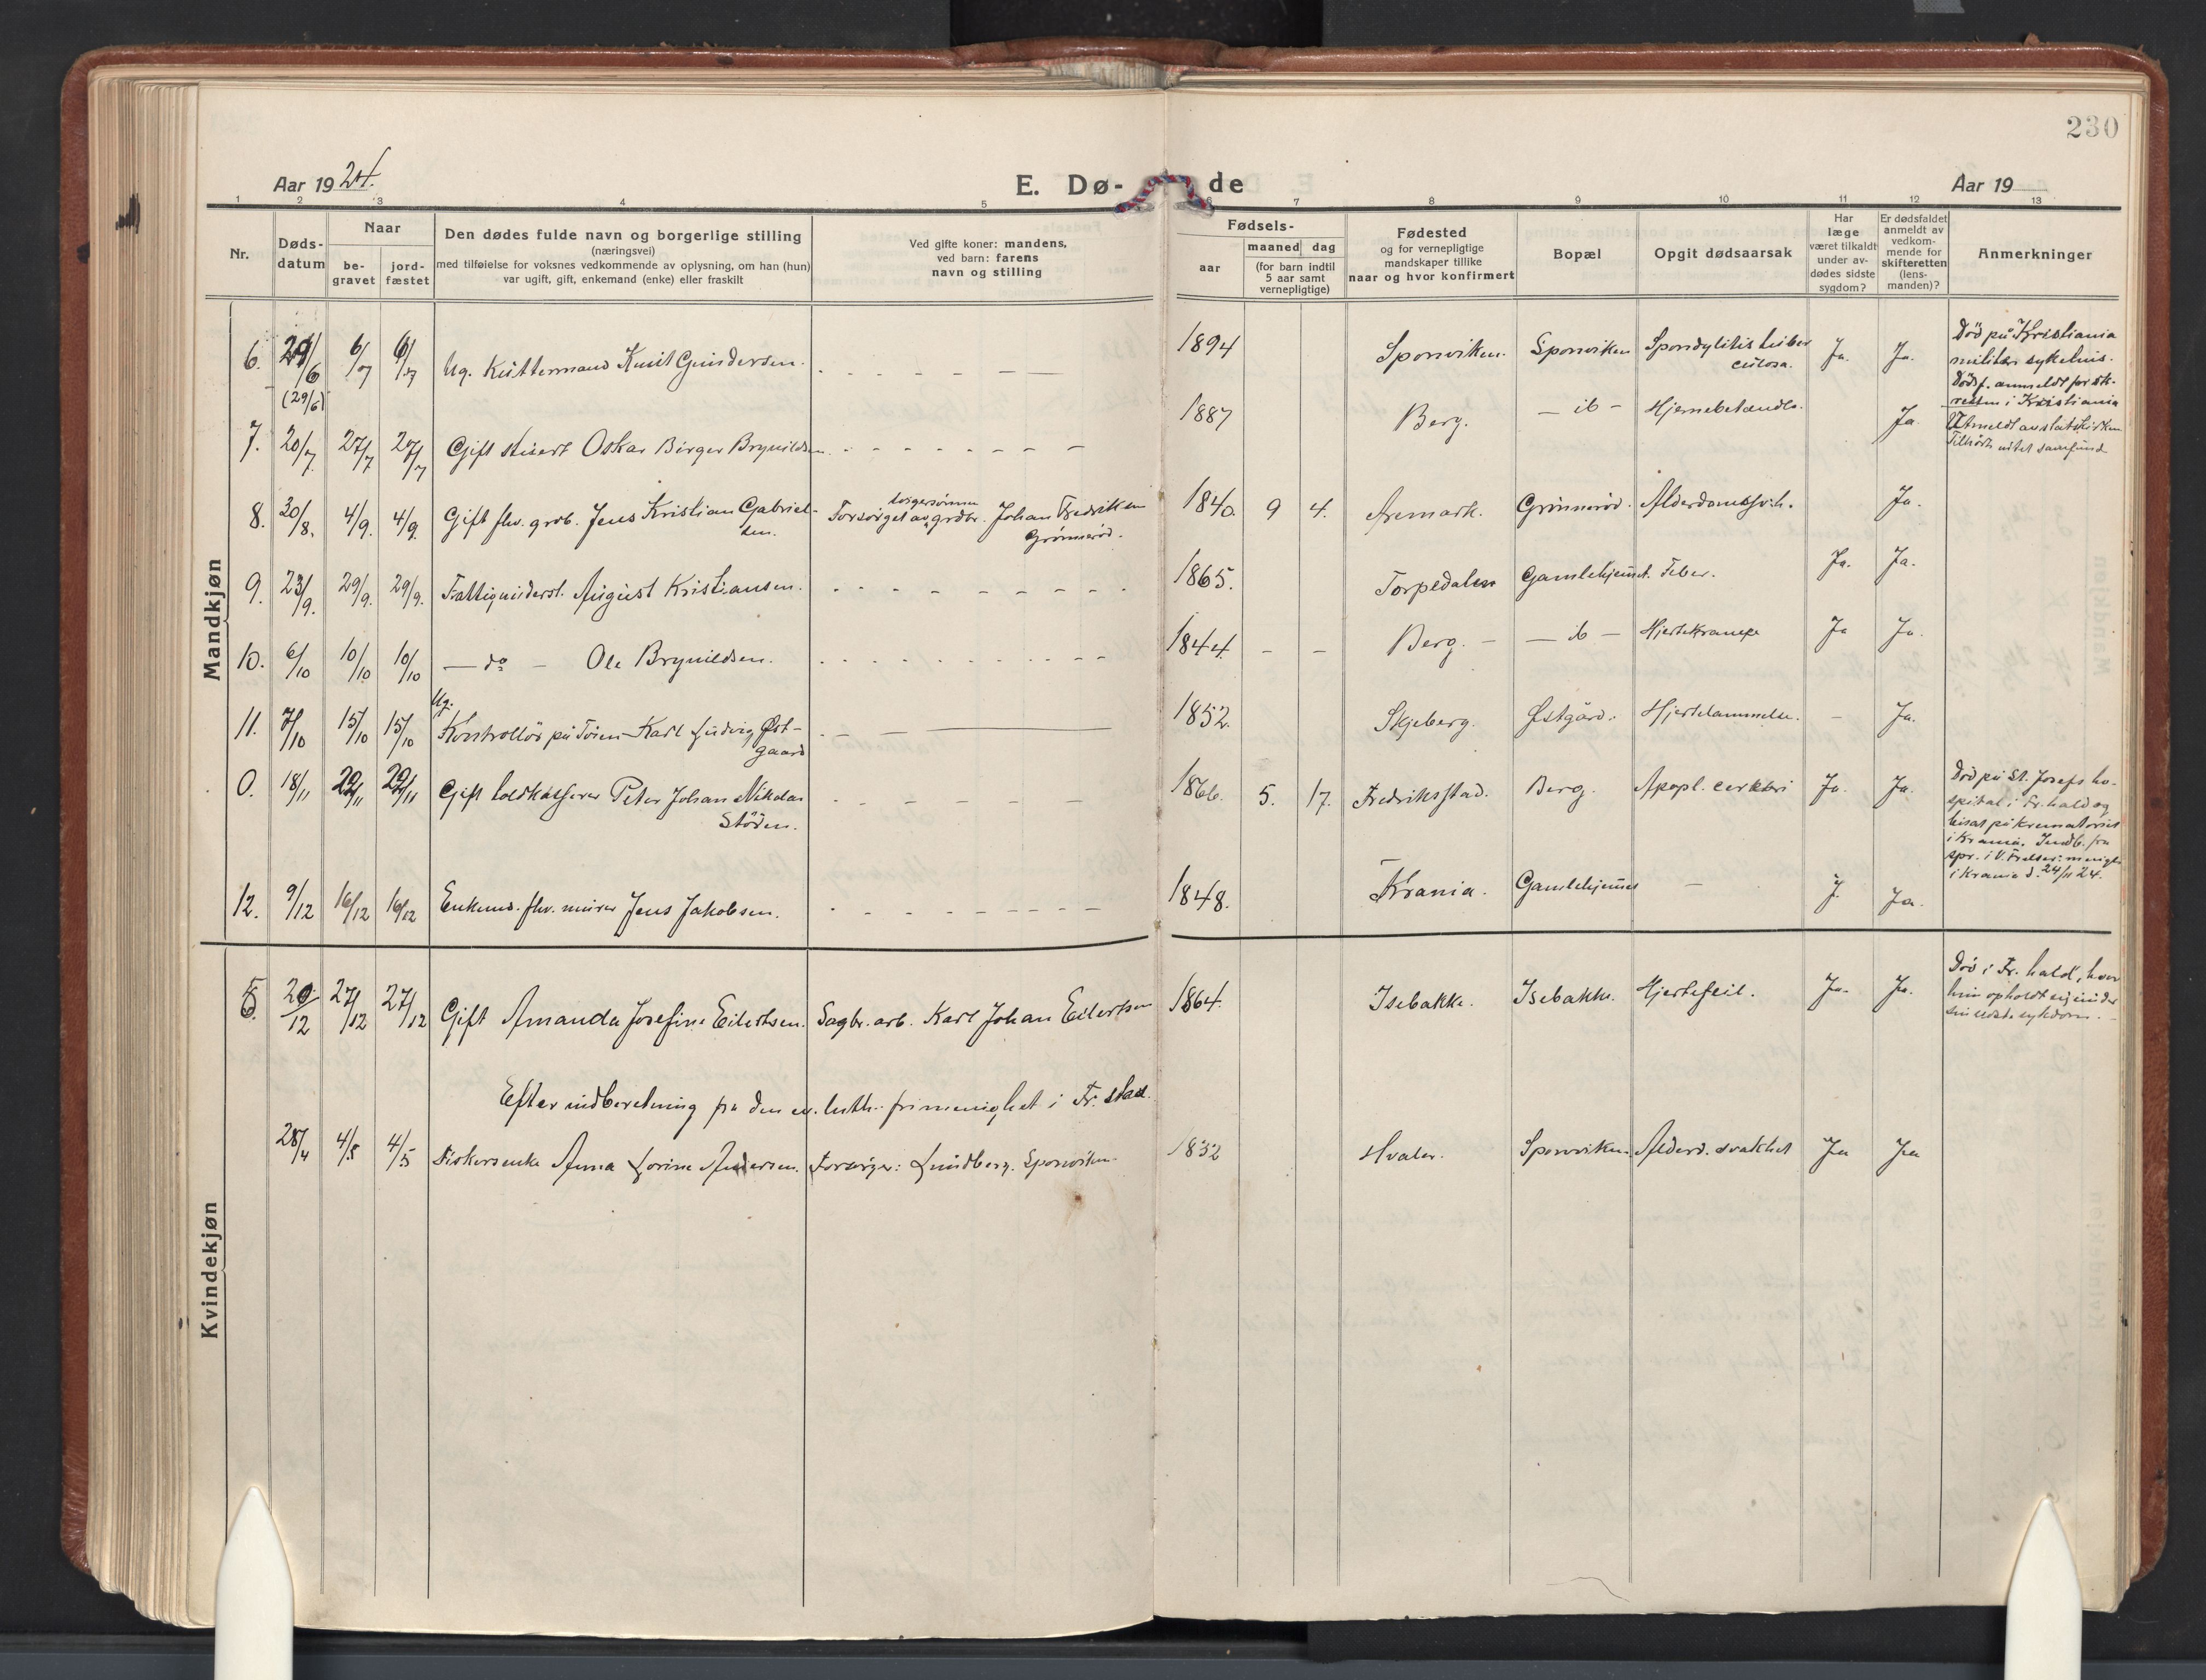 230
Aar 1924.
E. Dø-
de
Aar 19
1 2 3 4 5
6 7 8 9 10 11 12 13
Nr.
Døds-
datum
Naar
be-
gravet
jord-
fæstet
Den dødes fulde navn og borgerlige stilling
(næringsvei)
med tilføielse for voksnes vedkommende av oplysning, om han (hun)
var ugift, gift, enkemand (enke) eller fraskilt
Ved gifte koner: mandens,
ved barn: farens
navn og stilling
Fødsels-
aar
maaned dag
(for barn indtil
5 aar samt
vernepligtige)
Fødested
og for vernepligtige
mandskaper tillike
naar og hvor konfirmert
Bopæl
Opgit dødsaarsak
Har
læge
været tilkaldt
under av-
dødes sidste
sygdom?
Er dødsfaldet
anmeldt av
vedkom-
mende for
skifteretten
(lens-
manden)?
Anmerkninger
Mandkjøn
6. 29/6 6/7 6/7 Ug. Kuttermand Knut Gundersen. 1894 Sponviken. Sponviken Spondylitis tuber
culosa. Ja. Ja.
(29/6)
Død på Kristiania
militær sykehus.
Dödsf. anmeldt for sk-
retten i Kristiania
7. 20/7 27/7 27/7 Gift Oskar Birger Brynildsen. 1887 Berg. - ib - Hjernebetændelse. Ja.
Utmeldt av statskirken
Tilhörte intet samfund
8. 30/8. 4/9. 4/9. Gift fhv. grdb. Jens Kristian Gabriel-
sen.
svigersønnen
Forsörget av grdbr. Johan Fredriksen
Grönneröd.
1840. 9 4. Aremark. Grönneröd. Alderdomssv.h. Ja.
9. 23/9. 29/9. 29/9. Fattigunderst. August Kristiansen. 1865. Torpedalen Gamlehjemmet. Feber. Ja. Ja.
10. 6/10 10/10 10/10 - do - Ole Brynildsen. 1844. - - Berg. - - ib - Hjertekrampe Ja Ja.
Ug.
11. 7/10 15/10 15/10 Kontrollör på Karl Ludvig Øst-
gaard
1852. Skjeberg. Østgård. Hjertelammelse. - Ja.
0. 18/11 22/11 22/11 Gift toldkasserer Peter Johan Nikolai
Stören.
1866. 5. 17. Fredriksstad. Berg. Apopl. cerebri Ja. Ja.
Död på St. Josefs ho-
spital i Fr. hald og
bisat på krematoriet
i Krania. Indb. fra
spr. i V. Frelser: menigh.
i Krania d. 24/11 24.
12. 9/12 16/12 16/12 Enkem. fhv. murer Jens Jakobsen. 1848. Krania. Gamlehjemmet - J. Ja.
Kvindekjøn
6. 20/12 27/12 27/12 Gift Amanda Josefine Eilertsen. Sagbr. arb. Karl Johan Eilertsen 1864. Isebakke. Isebakke. Hjertefeil. Ja. Ja.
Död i Fr. hald, hvor
hun opholdt sig under
sin sidste sykdom.
Efter indberetning fra den ev. luth. frimenighet i Fr. stad.
28/4 4/5 4/5 Fiskersenke Anna Lorine Andersen. Forsörger: Lundberg. Sponviken. 1832 Hvaler. Sponviken Alderd. svakhet Ja Ja